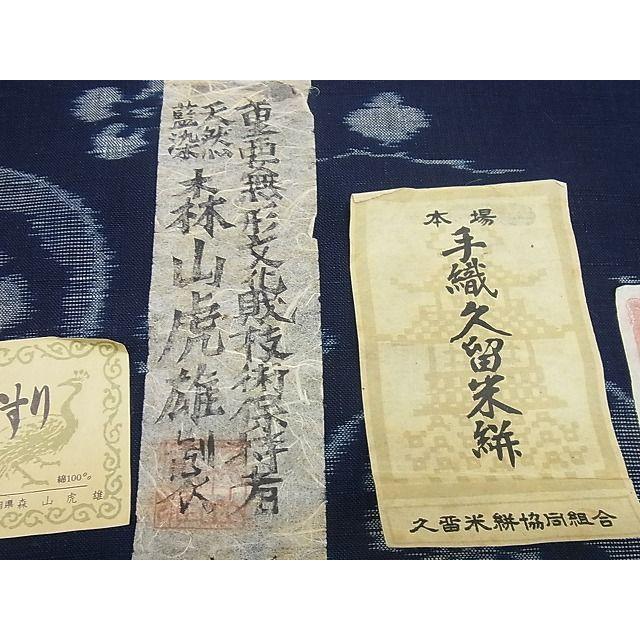 重要無形文化財技術保持者
天然
藍染
森山虎雄製
本場
手織久留米絣
久留米絣協同組合
すり
綿100%
県森 山 虎 雄